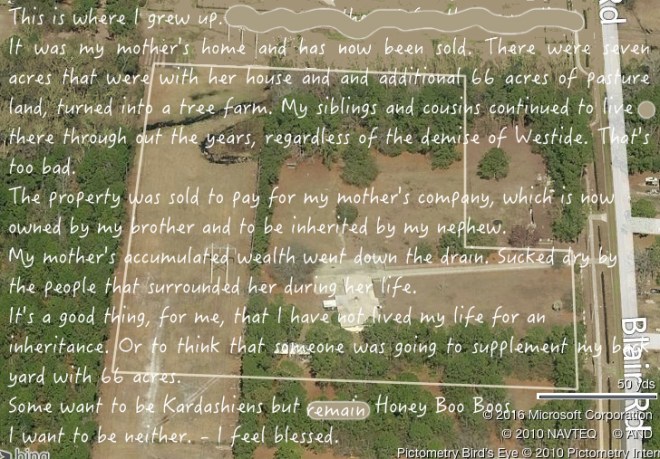 This is where I grew up.
It was my mother's home and has now been sold. There were seven
acres that were with her house and and additional 66 acres of pasture
land, turned into a tree farm. My siblings and cousins continued to live
there through out the years, regardless of the demise of Westide. That's
too bad.
The property was sold to pay for my mother's company, which is now
owned by my brother and to be inherited by my nephew.
My mother's accumulated wealth went down the drain. Sucked dry by
the people that surrounded her during her life.
It's a good thing, for me, that I have not lived my life for an
inheritance. Or to think that someone was going to supplement my
yard with 66 acres.
Some want to be Kardashiens but remain Honey Boo Boos.
I want to be neither. - I feel blessed.
Rd
Blair Rd
50 yds
© 2016 Microsoft Corporation
© 2010 NAVTEQ © AND
Pictometry Bird's Eye © 2010 Pictometry Inter
bing